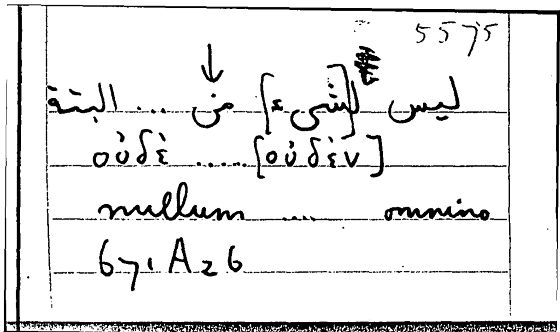 5575
ليس [لشىء] من ... البتة
οὐδὲ ..... [οὐδὲν]
nullum .... omnino
671 A 26